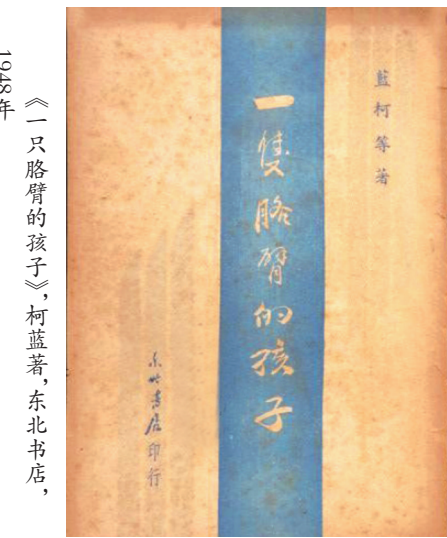 藍柯等著
一隻胳臂的孩子
东北书店印行
《一只胳臂的孩子》，柯蓝著，东北书店，
1948年